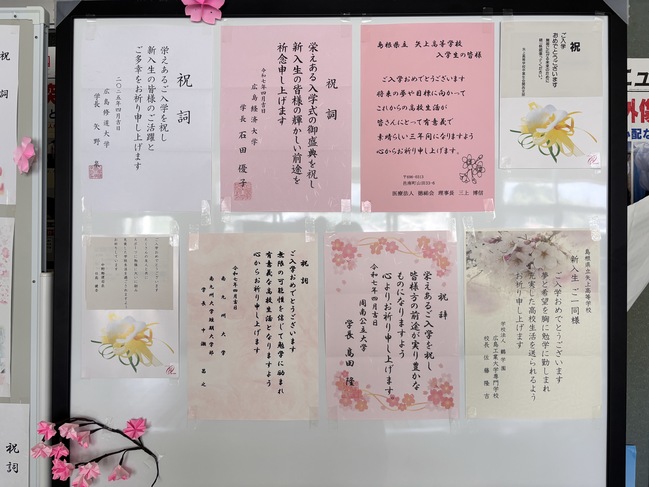 祝詞
栄えあるご入学を祝し
新入生の皆様のご活躍と
ご多幸をお祈り申し上げます
二〇二五年四月吉日
広島修道大学
学長 矢野 泉
祝詞
栄えある入学式の御盛典を祝し
新入生の皆様の輝かしい前途を
祈念申し上げます
令和七年四月吉日
広島経済大学
学長 石田 優子
島根県立 矢上高等学校
入学生の皆様
ご入学おめでとうございます
将来の夢や目標に向かって
これからの高校生活が
皆さんにとって有意義で
素晴らしい三年間になりますよう
心からお祈り申し上げます。
医療法人 理事長 三上 博信
祝
ご入学
おめでとうございます
祝詞
ご入学おめでとうございます。
無限の可能性を信じて勉学に励まれ
有意義な高校生活となりますよう
心からお祈り申し上げます
令和七年四月吉日
南九州大学
南九州大学短期大学部
学長
祝辞
栄えあるご入学を祝し
皆様方の前途が実り豊かな
ものになりますよう
心よりお祈り申し上げます
令和七年四月吉日
周南公立大学
学長 髙田 隆
島根県立矢上高等学校
新入生ご一同様
ご入学おめでとうございます
夢と希望を胸に勉学に勤しまれ
充実した高校生活を送られるよう
お祈り申し上げます
学校法人 鶴学園
広島工業大学専門学校
校長 佐藤 隆吉
祝詞
祝詞